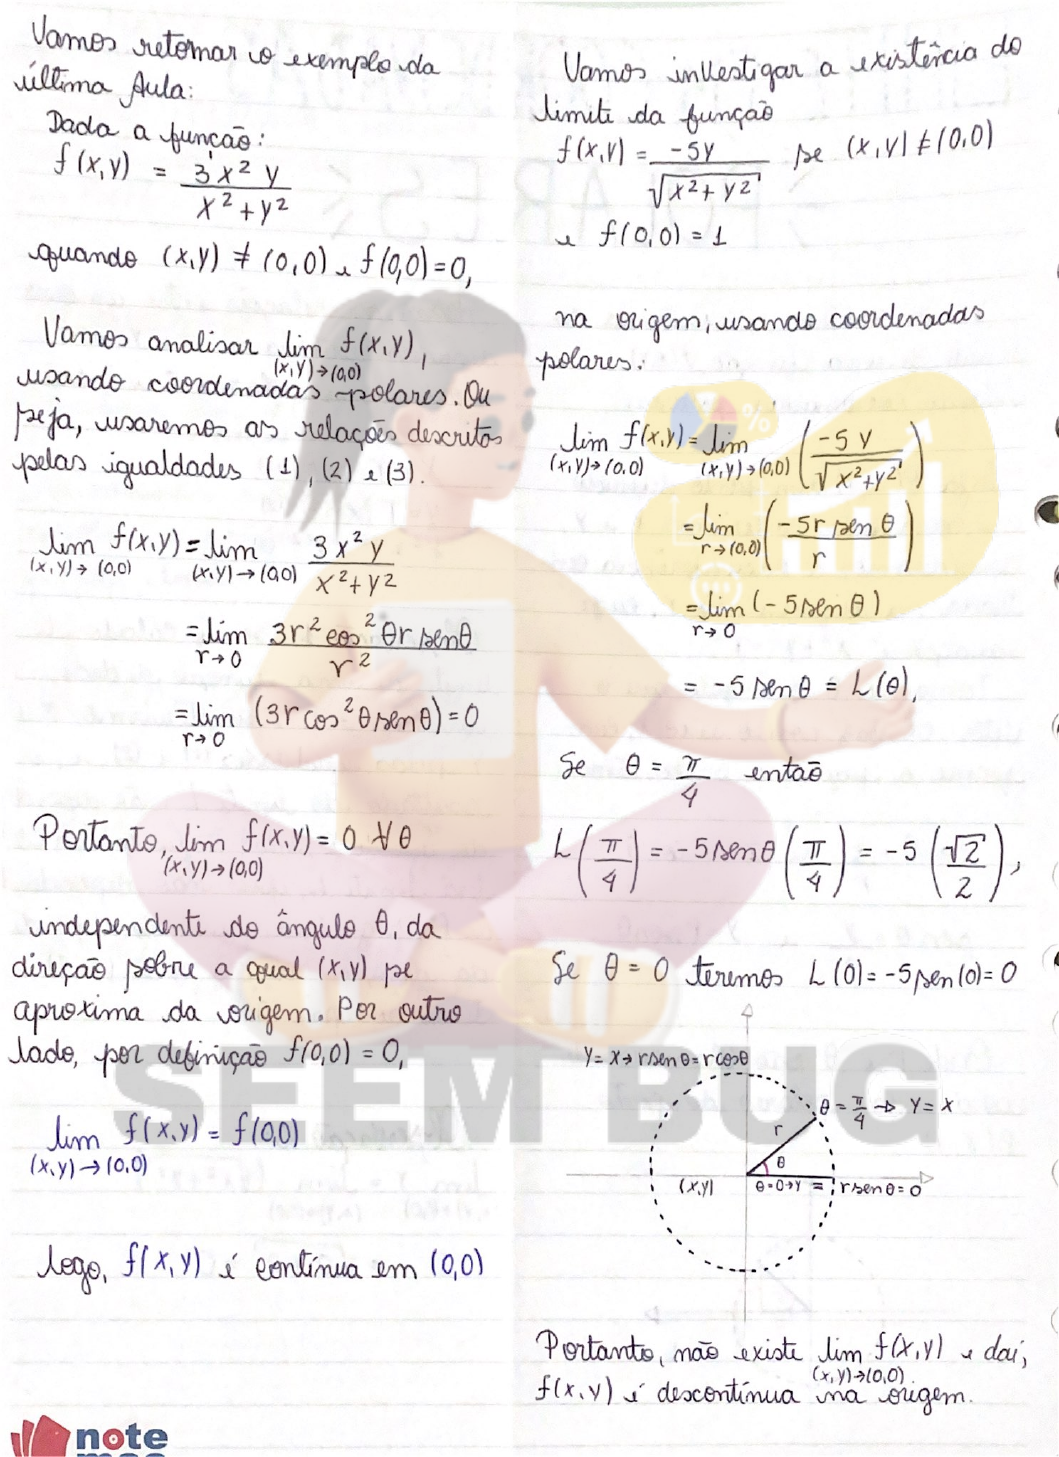 Vamos retomar o exemplo da
última Aula:
Dada a função:
f(x,y) = 3x² y / x² + y²
quando (x,y) ≠ (0,0) e f(0,0)=0,
Vamos analisar lim f(x,y),
(x,y)→(0,0)
usando coordenadas polares. Ou
seja, usaremos as relações descritas
pelas igualdades (1), (2) e (3).
lim f(x,y) = lim 3x² y / x² + y²
(x,y)→(0,0) (x,y)→(0,0)
= lim 3r² cos² θ r sen θ / r²
r→0
= lim (3r cos² θ sen θ) = 0
r→0
Portanto, lim f(x,y) = 0 ∀ θ
(x,y)→(0,0)
independente do ângulo θ, da
direção sobre a qual (x,y) se
aproxima da origem. Por outro
lado, por definição f(0,0) = 0,
lim f(x,y) = f(0,0)
(x,y)→(0,0)
logo, f(x,y) é contínua em (0,0)
Vamos investigar a existência do
limite da função
f(x,y) = -5y / √x² + y² se (x,y) ≠ (0,0)
e f(0,0) = 1
na origem, usando coordenadas
polares.
lim f(x,y) = lim (-5y / √x² + y²)
(x,y)→(0,0) (x,y)→(0,0)
= lim (-5r sen θ / r)
r→(0,0)
= lim (-5 sen θ)
r→0
= -5 sen θ = L(θ),
Se θ = π/4 então
L(π/4) = -5 sen θ (π/4) = -5 (√2/2),
Se θ = 0 teremos L(0) = -5 sen(0) = 0
y = x → r sen θ = r cos θ
θ = π/4 → y = x
r
θ
(x,y)
θ = 0 → y = r sen θ = 0
Portanto, não existe lim f(x,y) e daí,
(x,y)→(0,0).
f(x,y) é descontínua na origem.
SEEM BUG
note